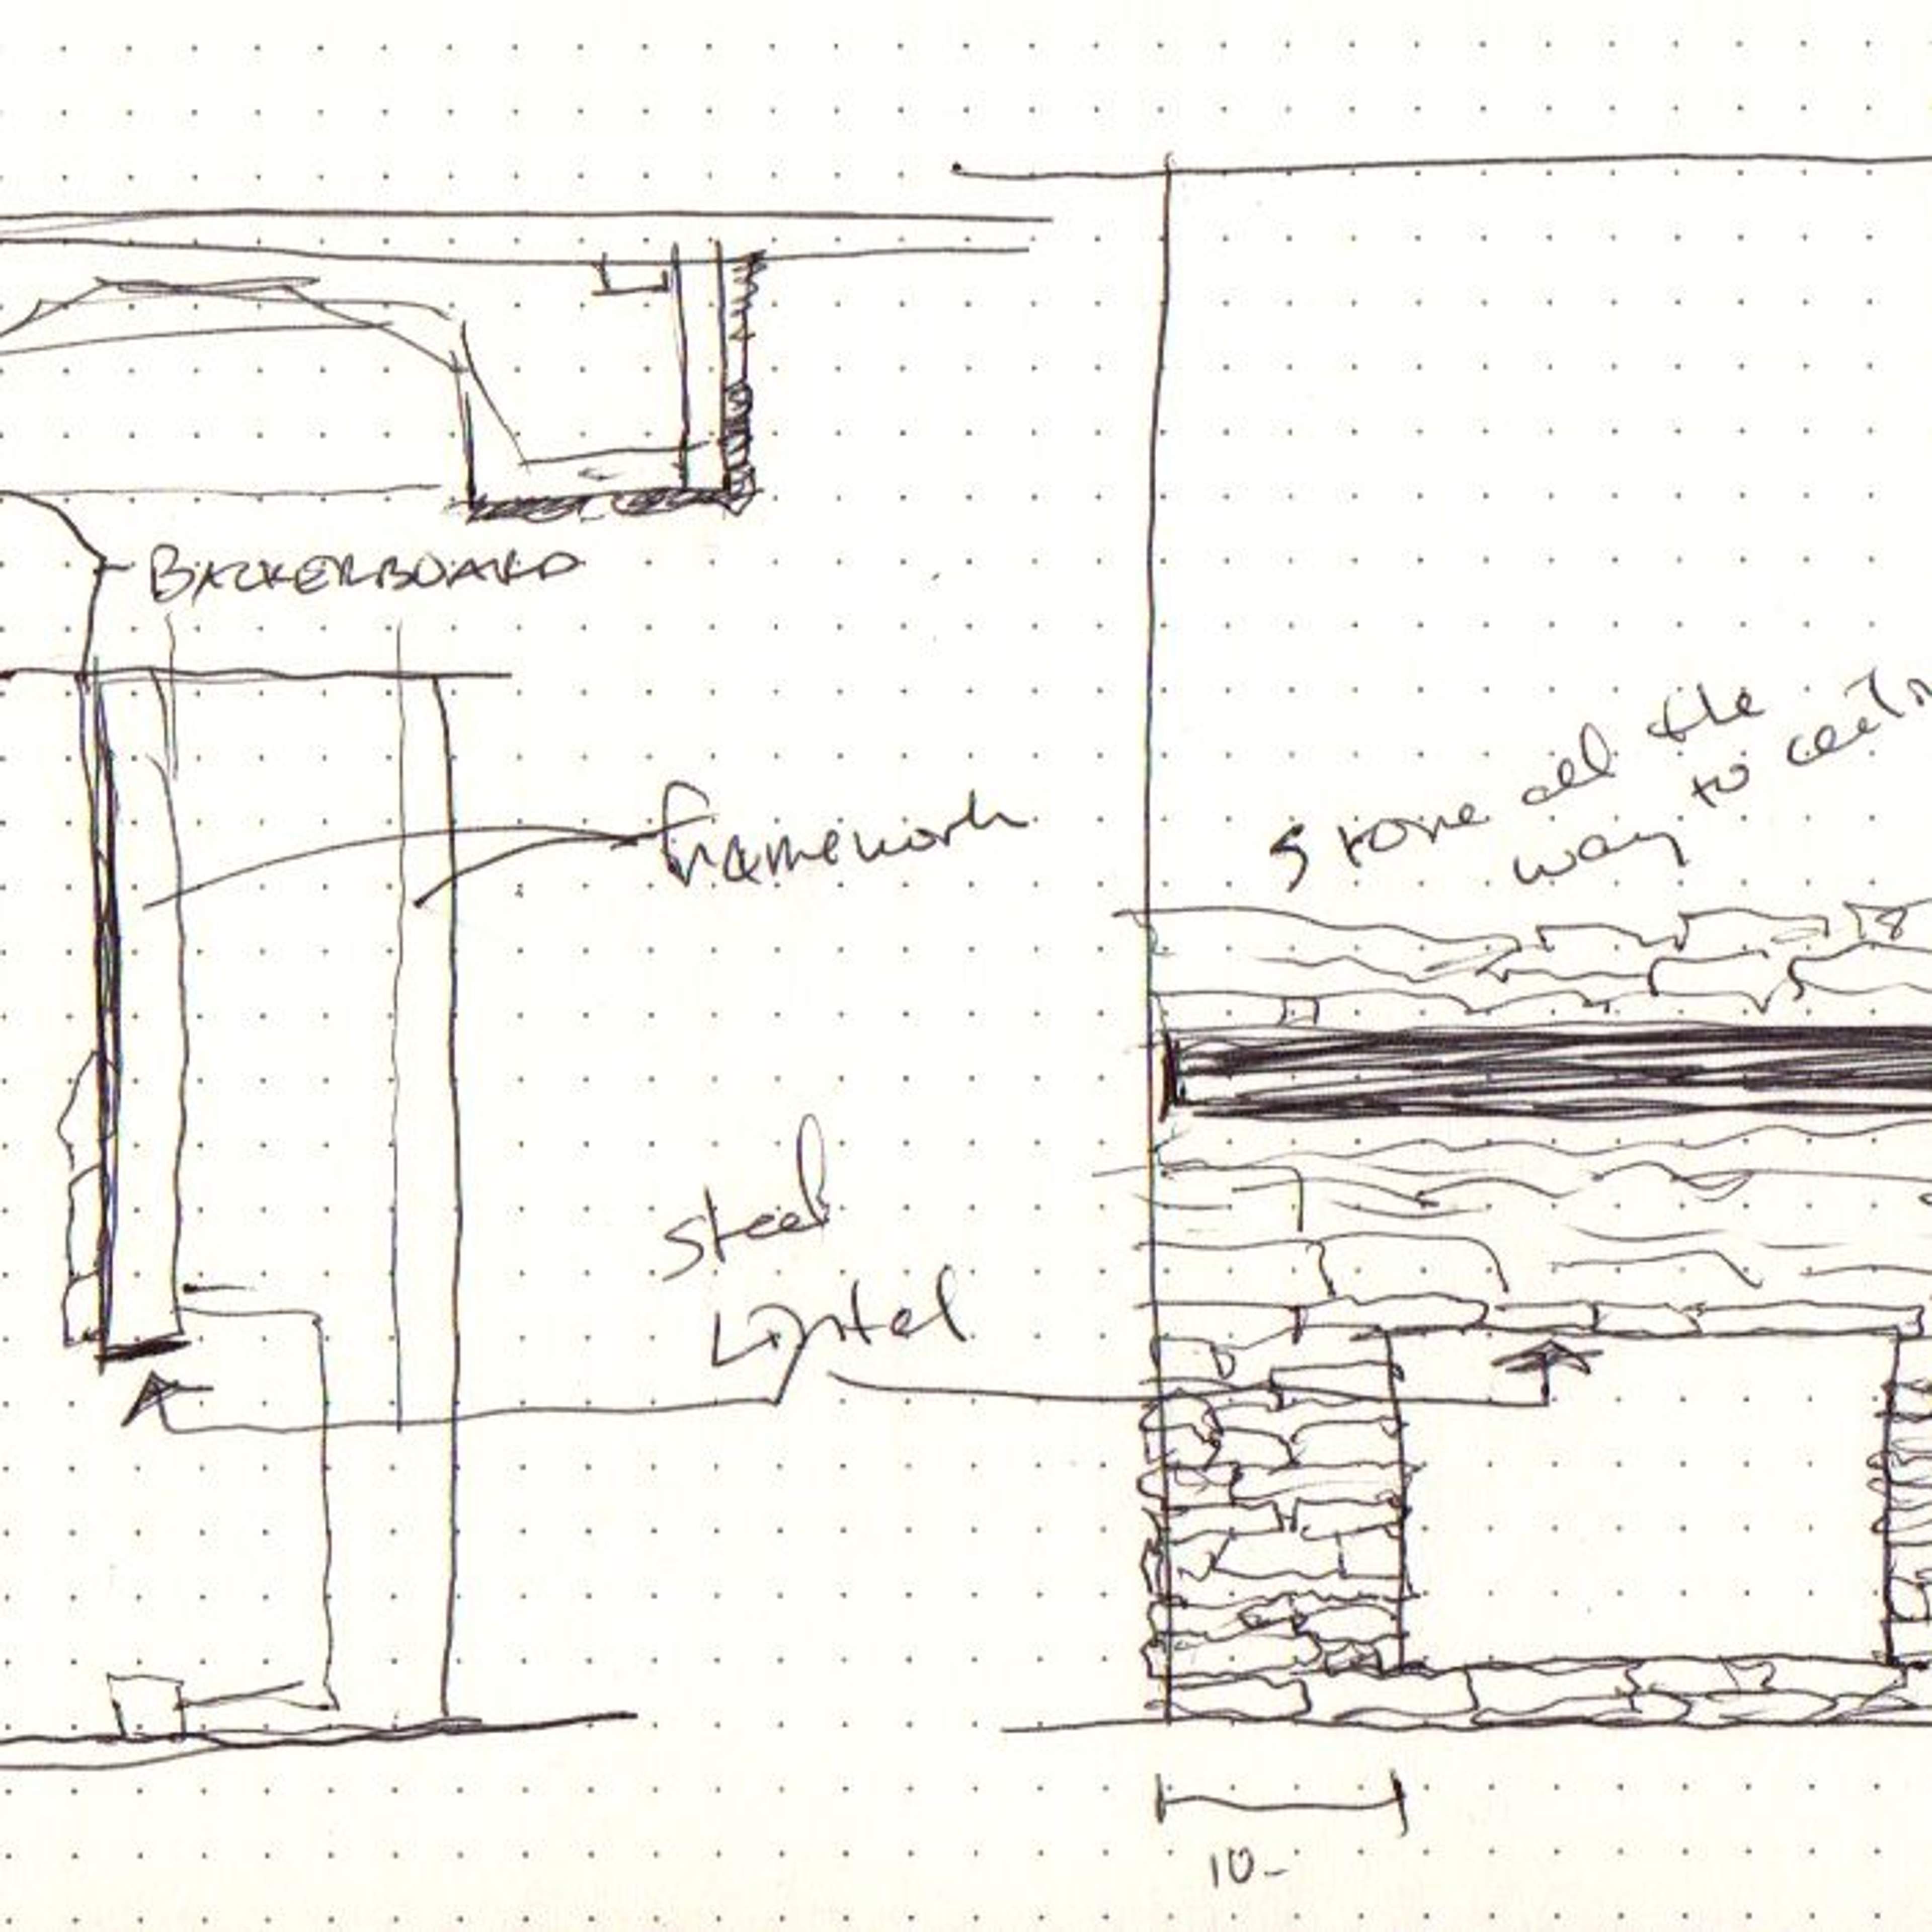 BACKERBOARD
framework
Stone all the
way to
steel
Lintel
10-